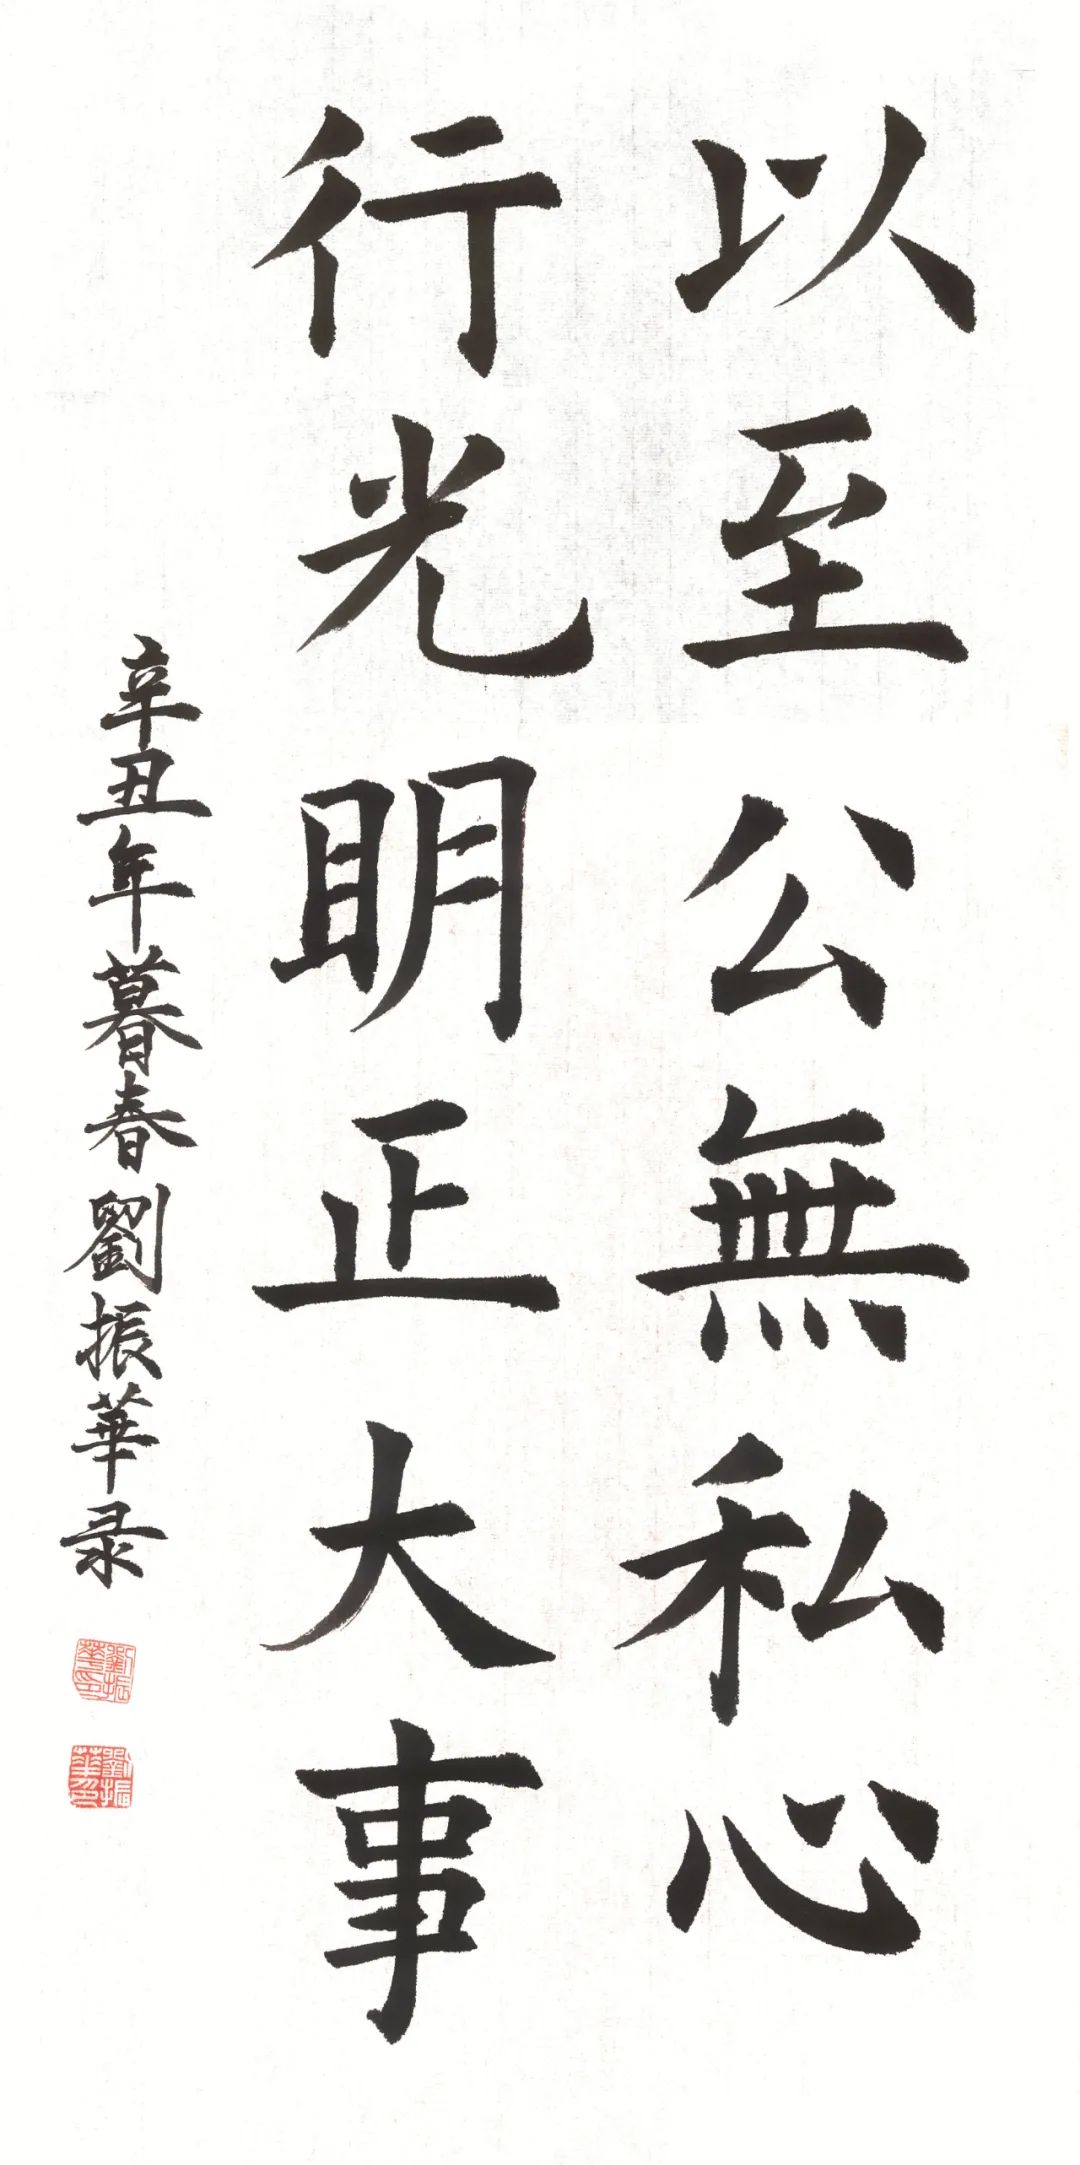 以至公無私心
行光明正大事
辛丑年暮春劉振華录
劉振華印
劉振華印